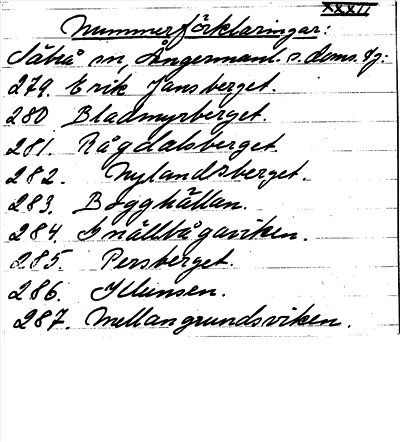 XXXII
Nummerförklaringar:
Såtrå sn, Ångermanl. s. doms. sg:
279. Erik Jansberget.
280 Bladmyrberget.
281. Rågdalsberget.
282. Nylandsberget.
283. Boggkällan.
284. Snällbågaviken.
285. Persberget.
286. Illunsen.
287. Mellangrundsviken.